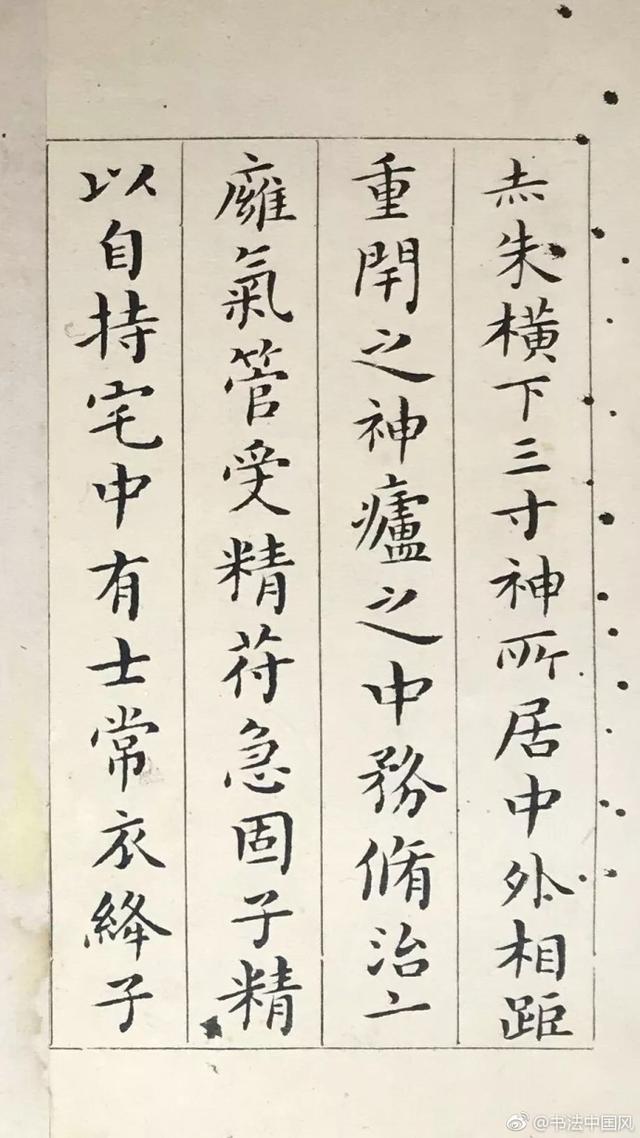 赤朱橫下三寸神所居中外相距
重閇之神廬之中務脩治㇀
癕氣管受精苻急固子精
以自持宅中有士常衣絳子
@书法中国风